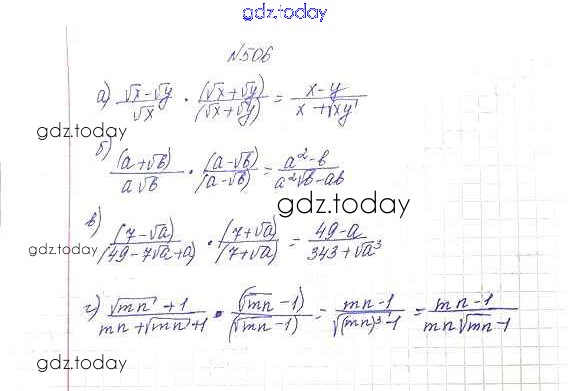 gdz.today
№506
а) (√x-√y)/√x · (√x+√y)/(√x+√y) = (x-y)/(x+√xy)
gdz.today
б) (a+√b)/(a√b) · (a-√b)/(a-√b) = (a²-b)/(a²√b-ab)
gdz.today
в) (7-√a)/(49-7√a+a) · (7+√a)/(7+√a) = (49-a)/(343+√a³)
gdz.today
г) (√mn+1)/(mn+√mn+1) · (√mn-1)/(√mn-1) = (mn-1)/(√(mn)³-1) = (mn-1)/(mn√mn-1)
gdz.today
gdz.today